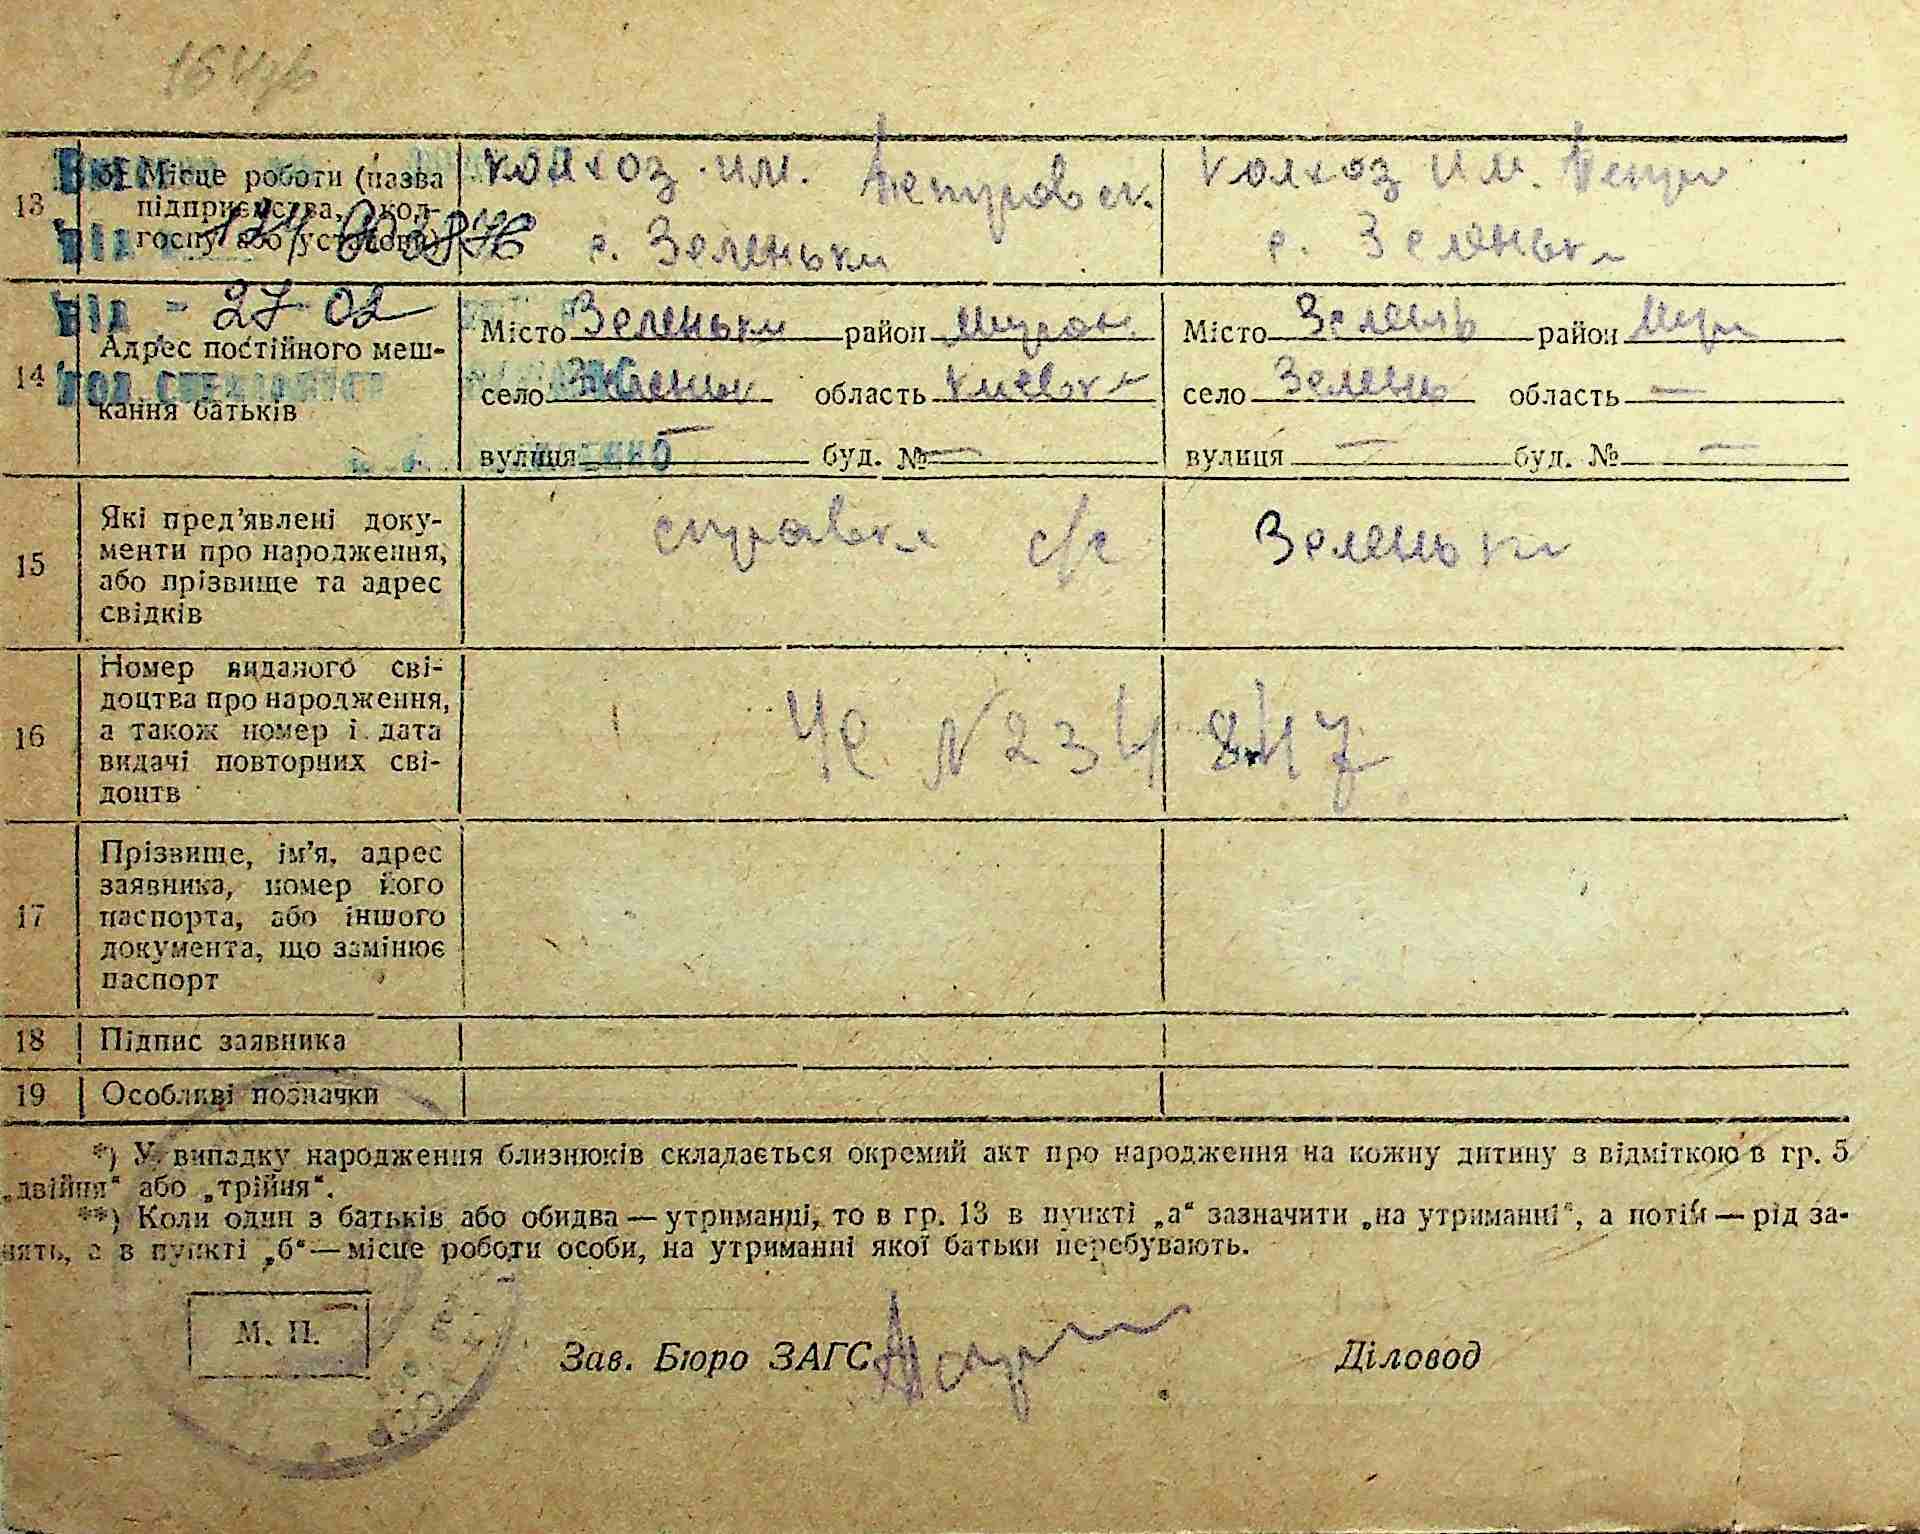 13
б) Місце роботи (назва
підприємства, кол-
госпу або установи)
колхоз им. Петровск.
с. Зеленьки
колхоз им. Петр
с. Зеленьк
27 02
14
Адрес постійного меш-
кання батьків
Місто Зеленьки район Мирон.
село Зеленьк область Киевск
вулиця — буд. № —
Місто Зелень район Мир
село Зелень область —
вулиця — буд. № —
15
Які пред'явлені доку-
менти про народження,
або прізвище та адрес
свідків
справка с/с Зеленьки
16
Номер виданого сві-
доцтва про народження,
а також номер і дата
видачі повторних сві-
доцтв
ЧС N 234847
17
Прізвище, ім'я, адрес
заявника, номер його
паспорта, або іншого
документа, що замінює
паспорт
18 Підпис заявника
19 Особливі позначки
*) У випадку народження близнюків складається окремий акт про народження на кожну дитину з відміткою в гр. 5
„двійня“ або „трійня“.
**) Коли один з батьків або обидва — утриманці, то в гр. 13 в пункті „а“ зазначити „на утриманні“, а потім — рід за-
нять, а в пункті „б“ — місце роботи особи, на утриманні якої батьки перебувають.
М. П.
Зав. Бюро ЗАГС
Діловод